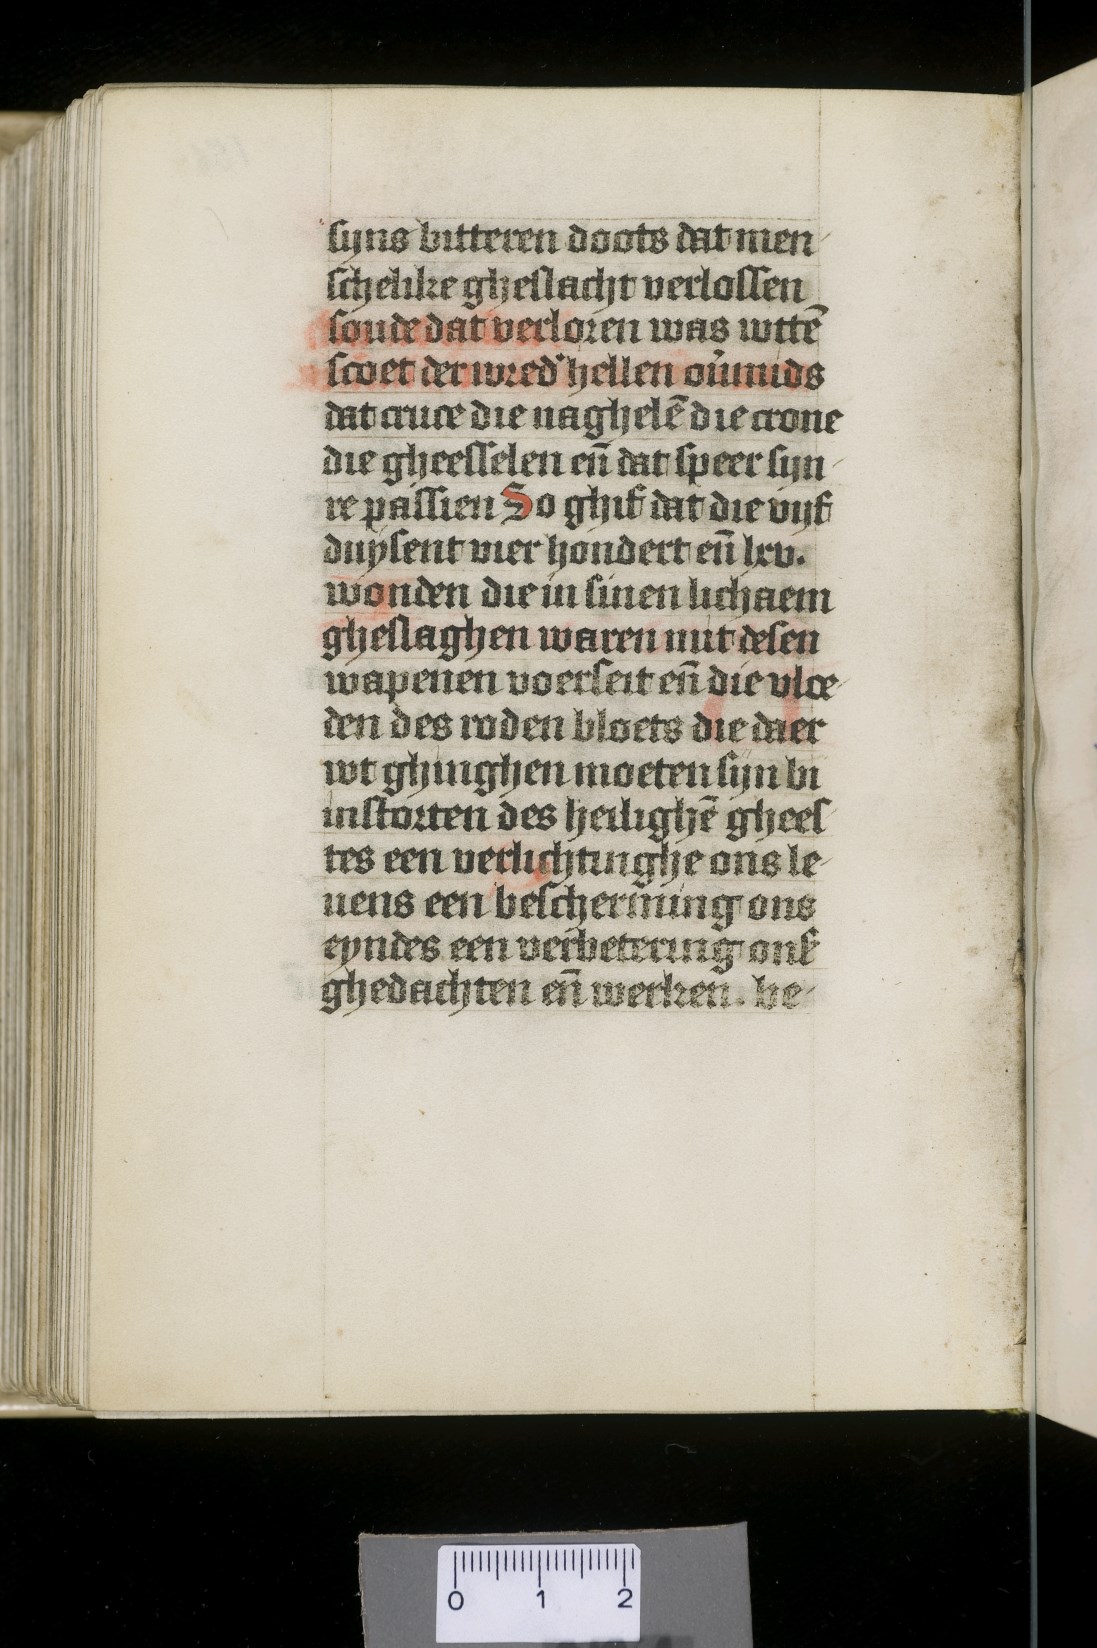 syns bitteren doots dat men
schelike gheslacht verlossen
soude dat verloren was wttē
scoet der wred' hellen ouͥmids
dat cruce die naghelē die crone
die gheesselen eñ dat speer syn
re passien So ghif dat die vijf
duÿsent vier hondert eñ lxv.
wonden die in sinen lichaem
gheslaghen waren mit desen
wapenen voerseit eñ die vloe
den des roden bloets die daer
wt ghinghen moeten sijn bi
instorten des heilighē ghees
tes een verlichtinghe ons le
uens een beschermīng ons
eyndes een verbetering ons̄
ghedachten eñ werken. be
0 1 2